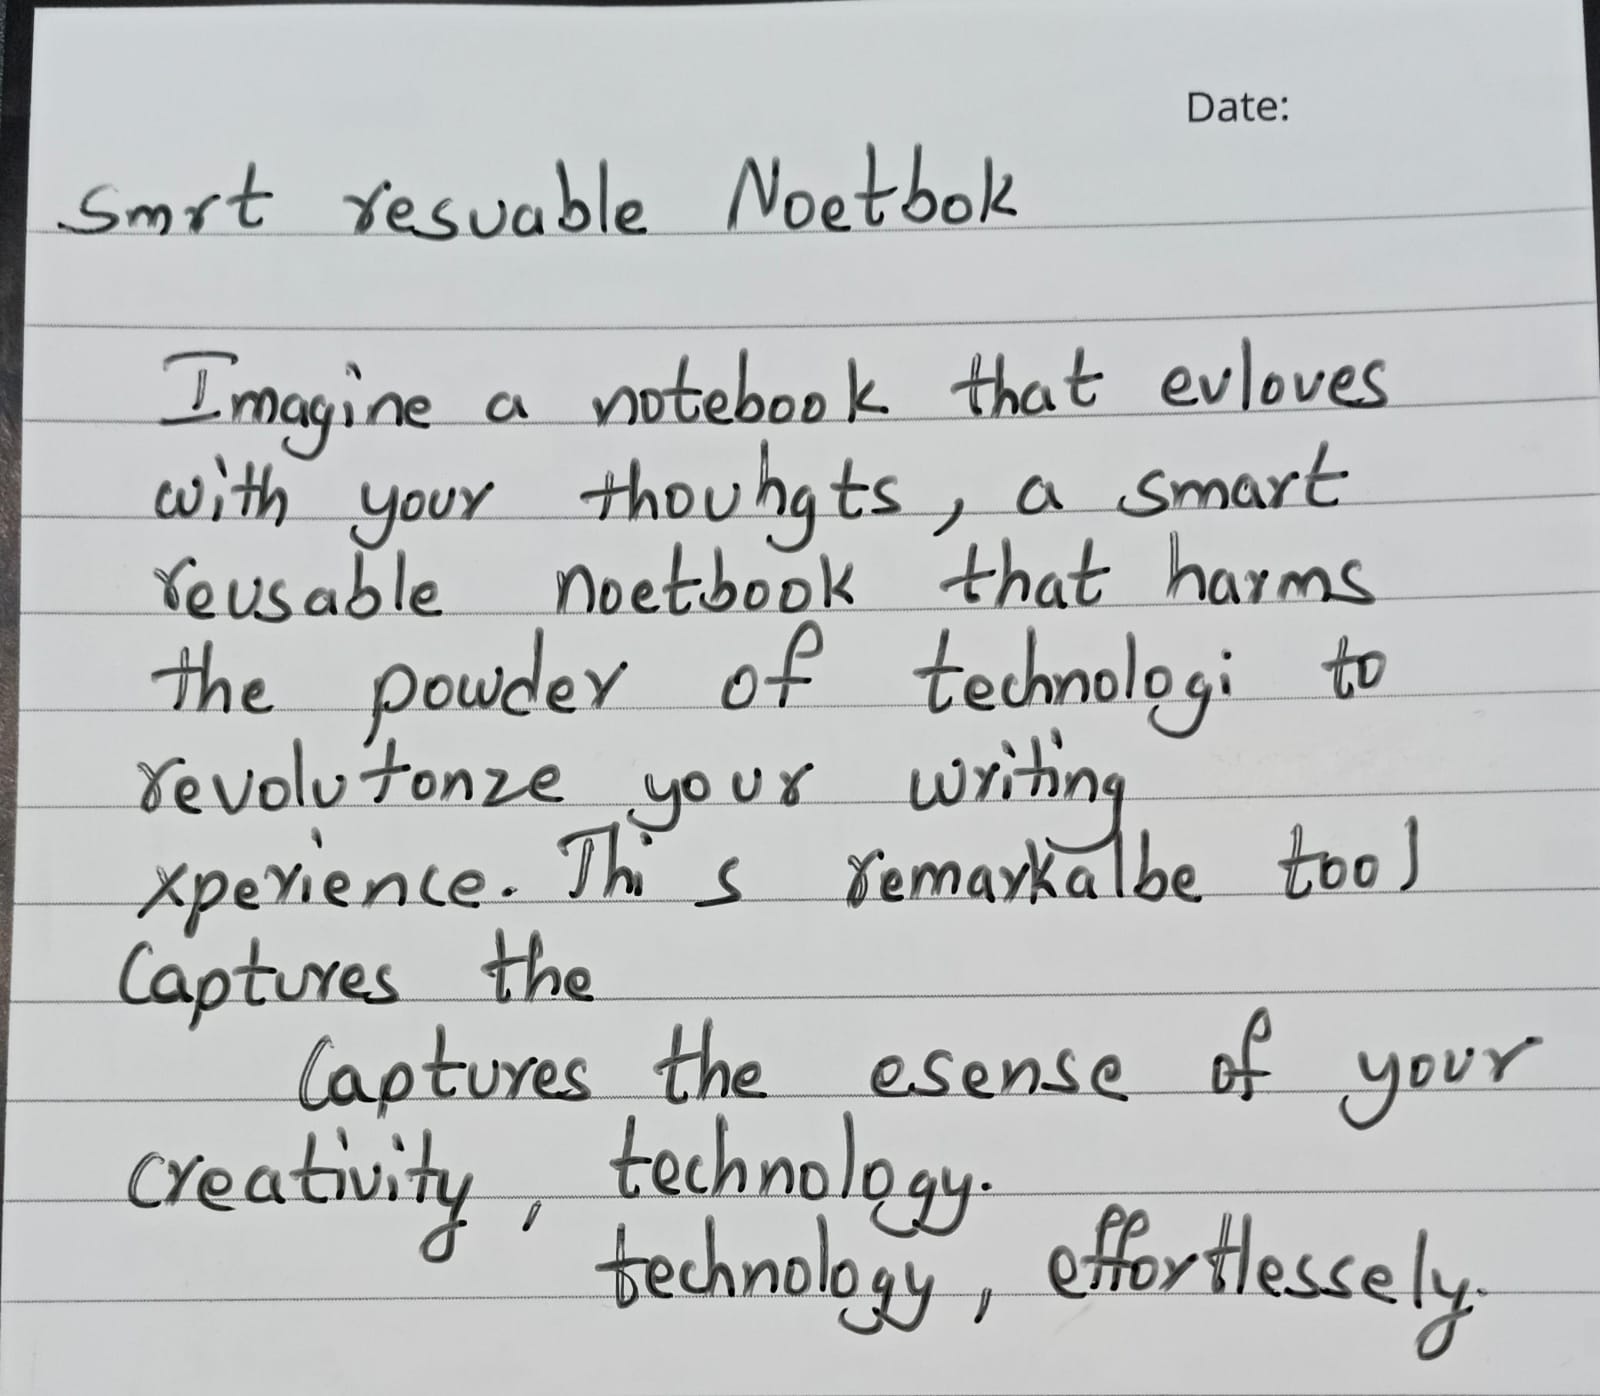 Date:
Smrt resuable Noetbok
Imagine a notebook that evloves
with your thouhgts, a smart
reusable noetbook that harms
the powder of technologi to
revolutonze your writing
xperience. Thi s remarkalbe tool
Captures the
Captures the esense of your
creativity, technology.
technology, effortlessely.